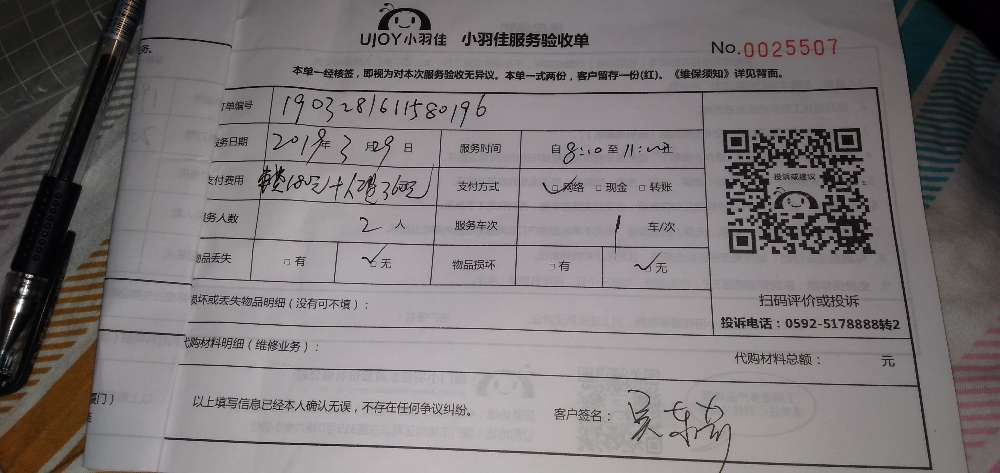 UJOY小羽佳 小羽佳服务验收单 No.0025507
本单一经核签，即视为对本次服务验收无异议。本单一式两份，客户留存一份(红)。《维保须知》详见背面。
单编号 1903281611580196
务日期 2019年3月29日 服务时间 自8:10至11:00
支付费用 支付方式 网络 现金 转账
务人数 2人 服务车次 1车/次
品丢失 有 无 物品损坏 有 无
投诉或建议
扫码评价或投诉
投诉电话：0592-5178888转2
损坏或丢失物品明细（没有可不填）：
代购材料明细（维修业务）： 代购材料总额： 元
以上填写信息已经本人确认无误，不存在任何争议纠纷。 客户签名：